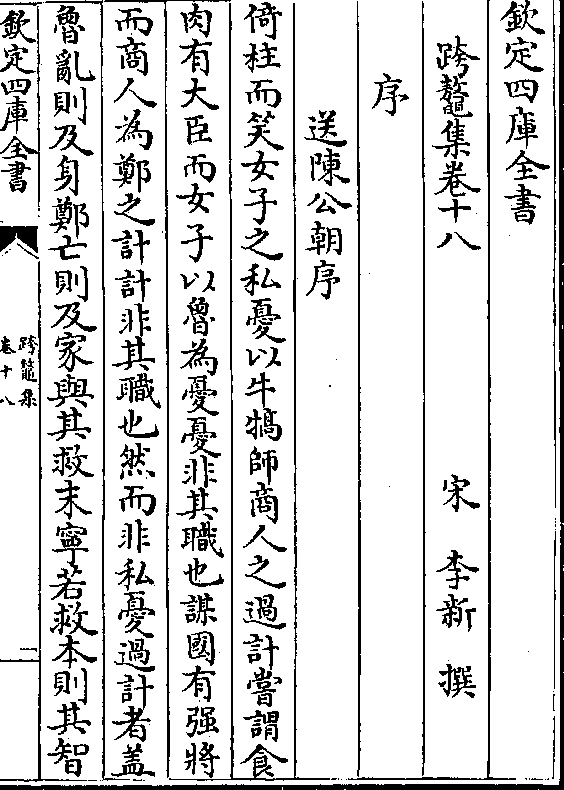 欽定四庫全書
跨鼇集卷十八
宋 李新 撰
序
送陳公朝序
倚柱而笑女子之私憂以牛犒師商人之過計嘗謂食
肉有大臣而女子以魯為憂憂非其職也謀國有强將
而商人為鄭之計計非其職也然而非私憂過計者盖
魯亂則及身鄭亡則及家與其救末寧若救本則其智
欽定四庫全書
跨鼇集
卷十八
一